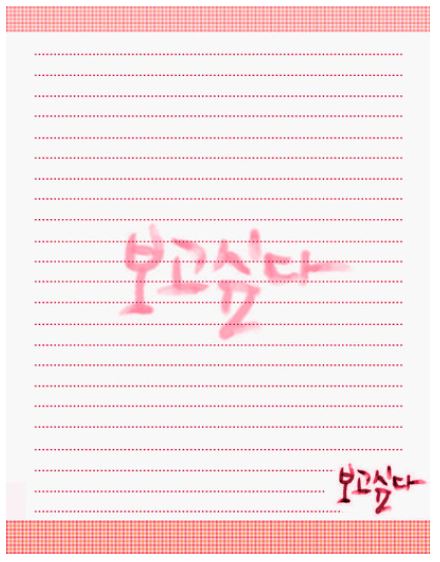 보고싶다
보고싶다